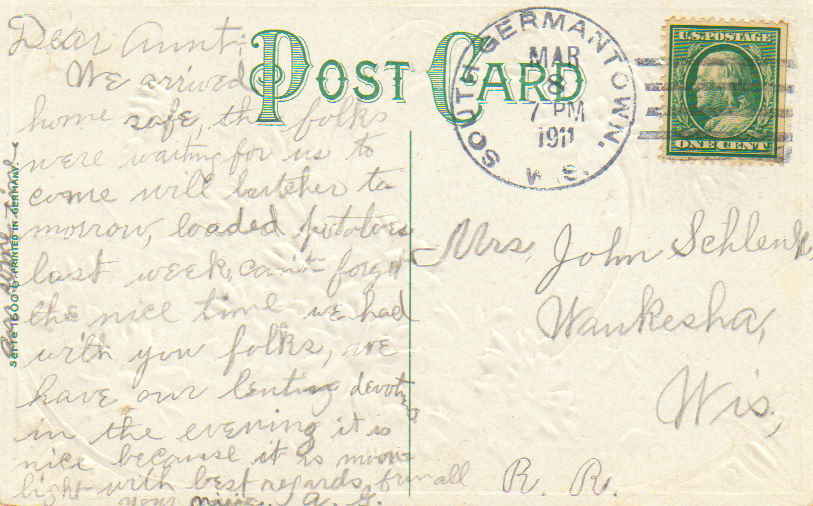 POST CARD
SOUTH GERMANTOWN.
MAR
8
7 PM
1911
WIS.
U.S. POSTAGE
ONE CENT
Dear Aunt;
We arrived
home safe, the folks
were waiting for us to
come will butcher to
morrow, loaded potatoes
last week, can't forget
the nice time we had
with you folks, we
have our lenting devot
in the evening it is
nice because it is moon
light with best regards from all
your niece A. S.
Mrs. John Schlenk,
Waukesha,
Wis,
R. R.
Serie 1600 G. PRINTED IN GERMANY.